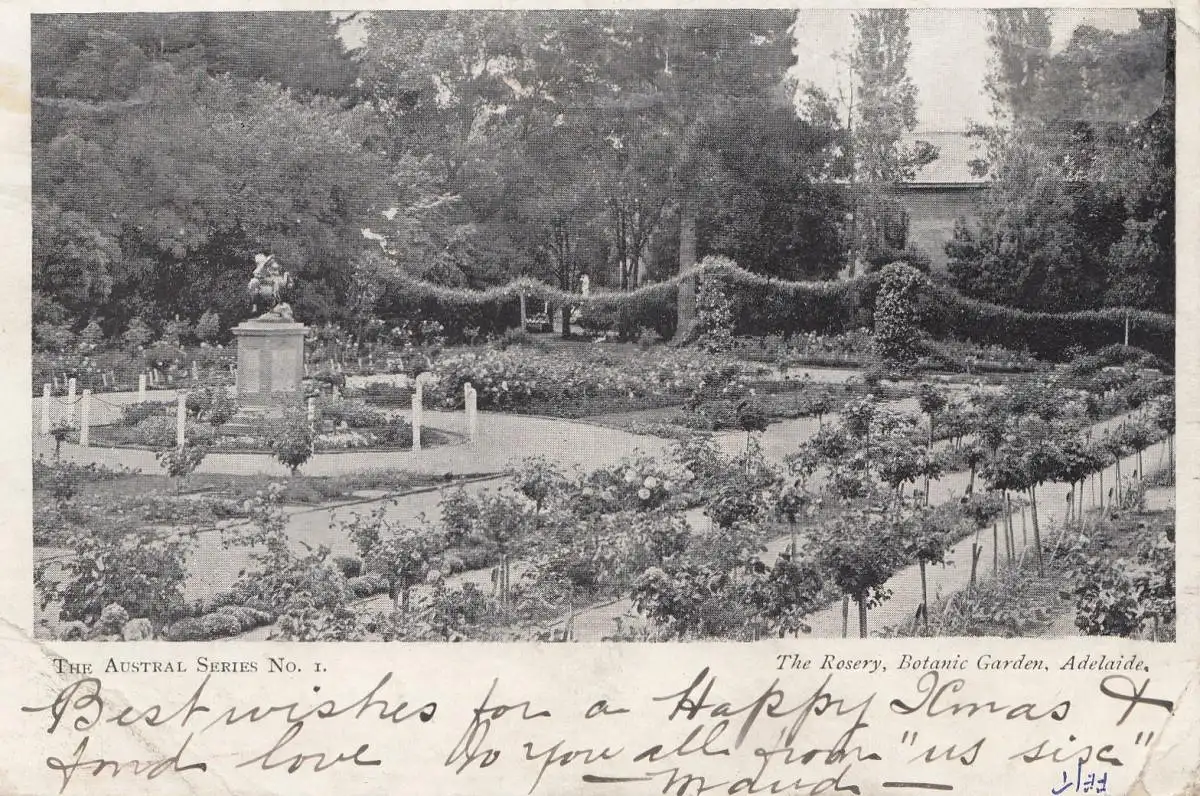 THE AUSTRAL SERIES No. 1.
The Rosery, Botanic Garden, Adelaide.
Best wishes for a Happy Xmas &
fond love to you all from "us six"
— Maud —